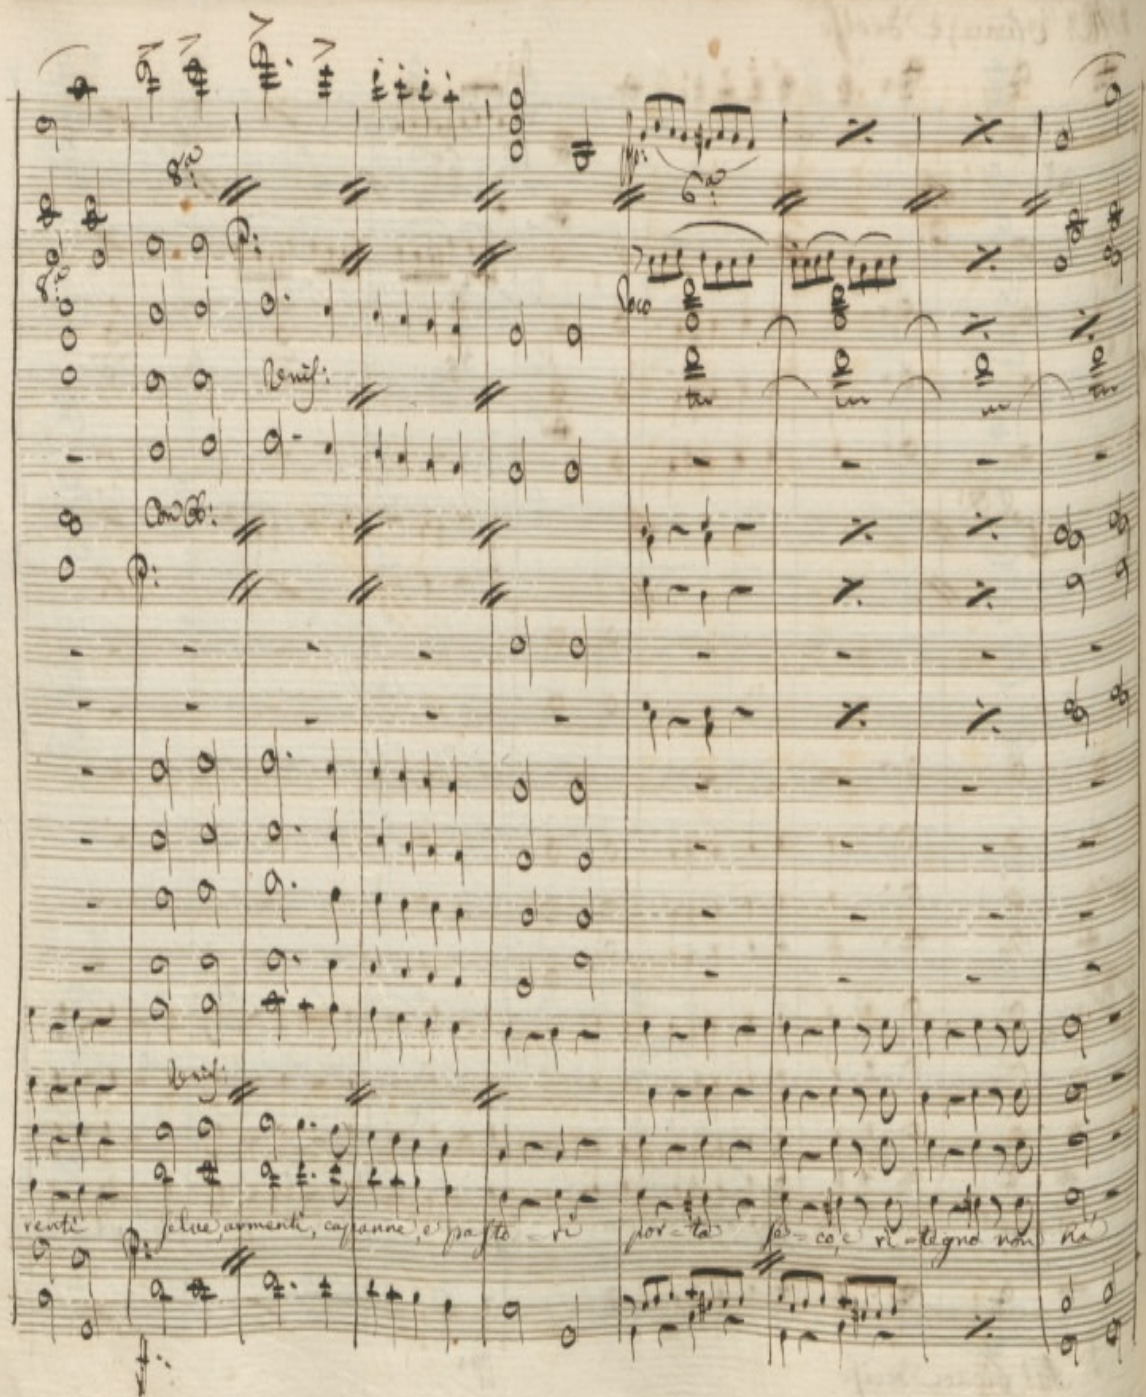 8ª
6ª
8ª
loco
Unis:
Con Ob:
Unis:
renti selve, armenti, capanne, e pasto = ri por = ta se = co, e ri = tegno non ha
f: